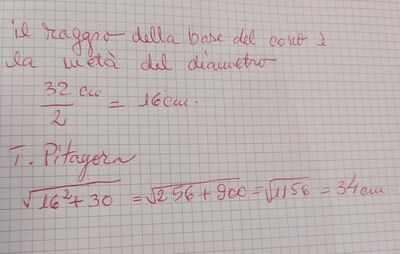 il raggio della base del cono è
la metà del diametro
32 cm / 2 = 16 cm.
T. Pitagora
√16²+30 = √256+900 = √1156 = 34 cm.